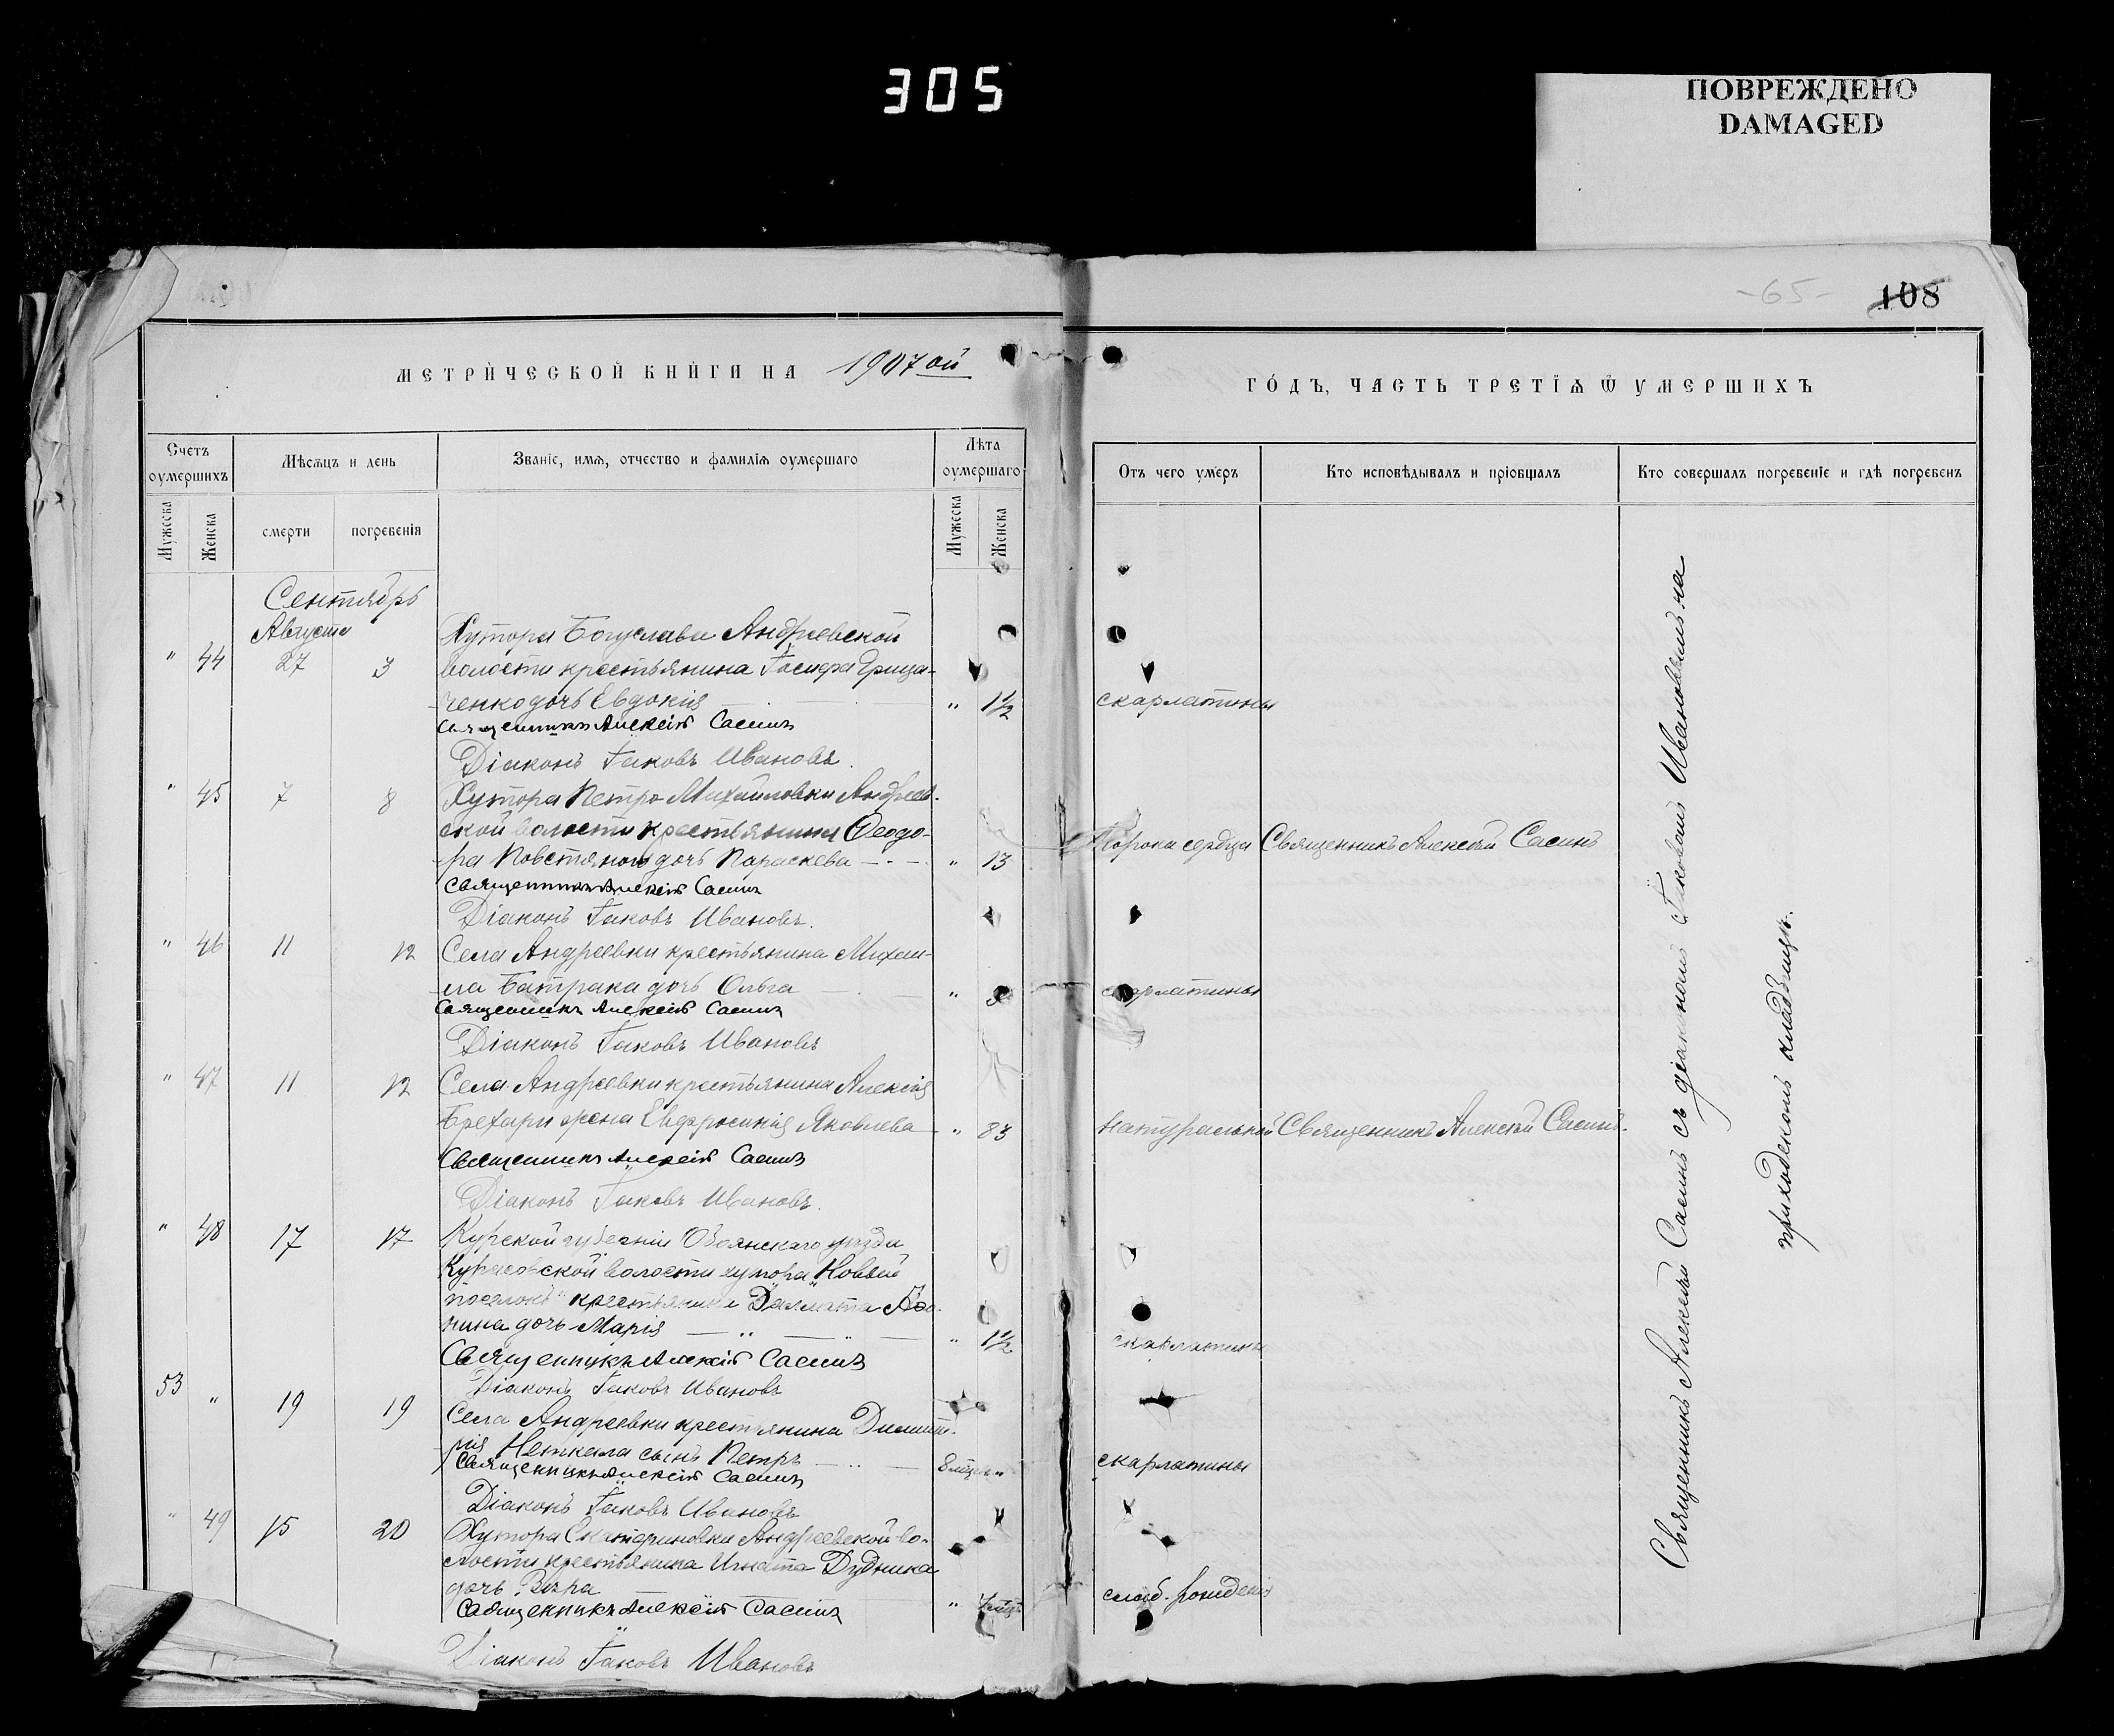 305
ПОВРЕЖДЕНО
DAMAGED
-65-
108
МЕТРИЧЕСКОЙ КНИГИ НА 1907ой
ГОДЪ, ЧАСТЬ ТРЕТІЯ Ѿ УМЕРШИХЪ
Счетъ оумершихъ
Мужеска
Женска
Мѣсяцъ и день
смерти
погребенія
Званіе, имя, отчество и фамилія оумершаго
Лѣта оумершаго
Мужеска
Женска
Отъ чего умеръ
Кто исповѣдывалъ и пріобщалъ
Кто совершалъ погребеніе и гдѣ погребенъ
Сентябрь
Августа
Хутора Богуслава Андреевской
" 44 27 3 волости крестьянина Грица-
ченко дочь Евдокія " 1½ скарлатины
Священникъ Алексій Сасинъ
Діаконъ Іаковъ Ивановъ.
" 45 7 8 Хутора Петро Михайловки Андреев-
ской волости крестьянина Ѳеодо-
ра Повстяного дочь Параскева " 13 Порока сердца Священникъ Алексѣй Сасинъ
Священникъ Алексій Сасинъ
Діаконъ Іаковъ Ивановъ.
" 46 11 12 Села Андреевки крестьянина Михаи-
ла Батрака дочь Ольга " скарлатины
Священникъ Алексій Сасинъ
Діаконъ Іаковъ Ивановъ
" 47 11 12 Села Андреевки крестьянина Алексія
Брехари жена Евфросинія Яковлева " 83 натуральной Священникъ Алексѣй Сасинъ.
Священникъ Алексій Сасинъ
Діаконъ Іаковъ Ивановъ.
" 48 17 17 Курской губерніи Обоянскаго уѣзда
Курасовской волости хутора "Новый
поселокъ" крестьянина Далмата
нина дочь Марія " 1½ скарлатины
Священникъ Алексій Сасинъ
Діаконъ Іаковъ Ивановъ
53 " 19 19 Села Андреевки крестьянина Димит-
рія Неткала сынъ Петръ 8 мѣц. " скарлатины
Священникъ Алексій Сасинъ
Діаконъ Іаковъ Ивановъ
" 49 15 20 Хутора Екатериновки Андреевской во-
лости крестьянина Игната Дудника
дочь Вѣра " слаб. рожденія
Священникъ Алексій Сасинъ
Діаконъ Іаковъ Ивановъ
Священникъ Алексѣй Сасинъ съ діакономъ Іаковомъ Ивановымъ на
приходскомъ кладбищѣ.